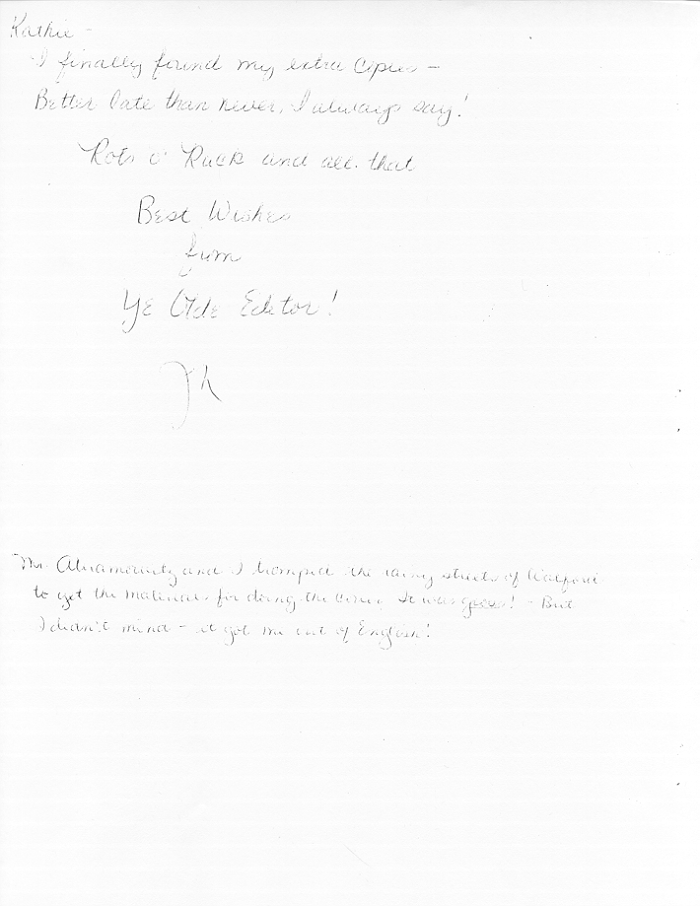 Kathie -
I finally found my extra copies -
Better late than never, I always say!
Rots o' Ruck and all that
Best Wishes
from
Ye Olde Editor!
Mr. and I tromped the rainy streets of
to get the materials for doing the It was ! - But
I didn't mind - it got me out of English!